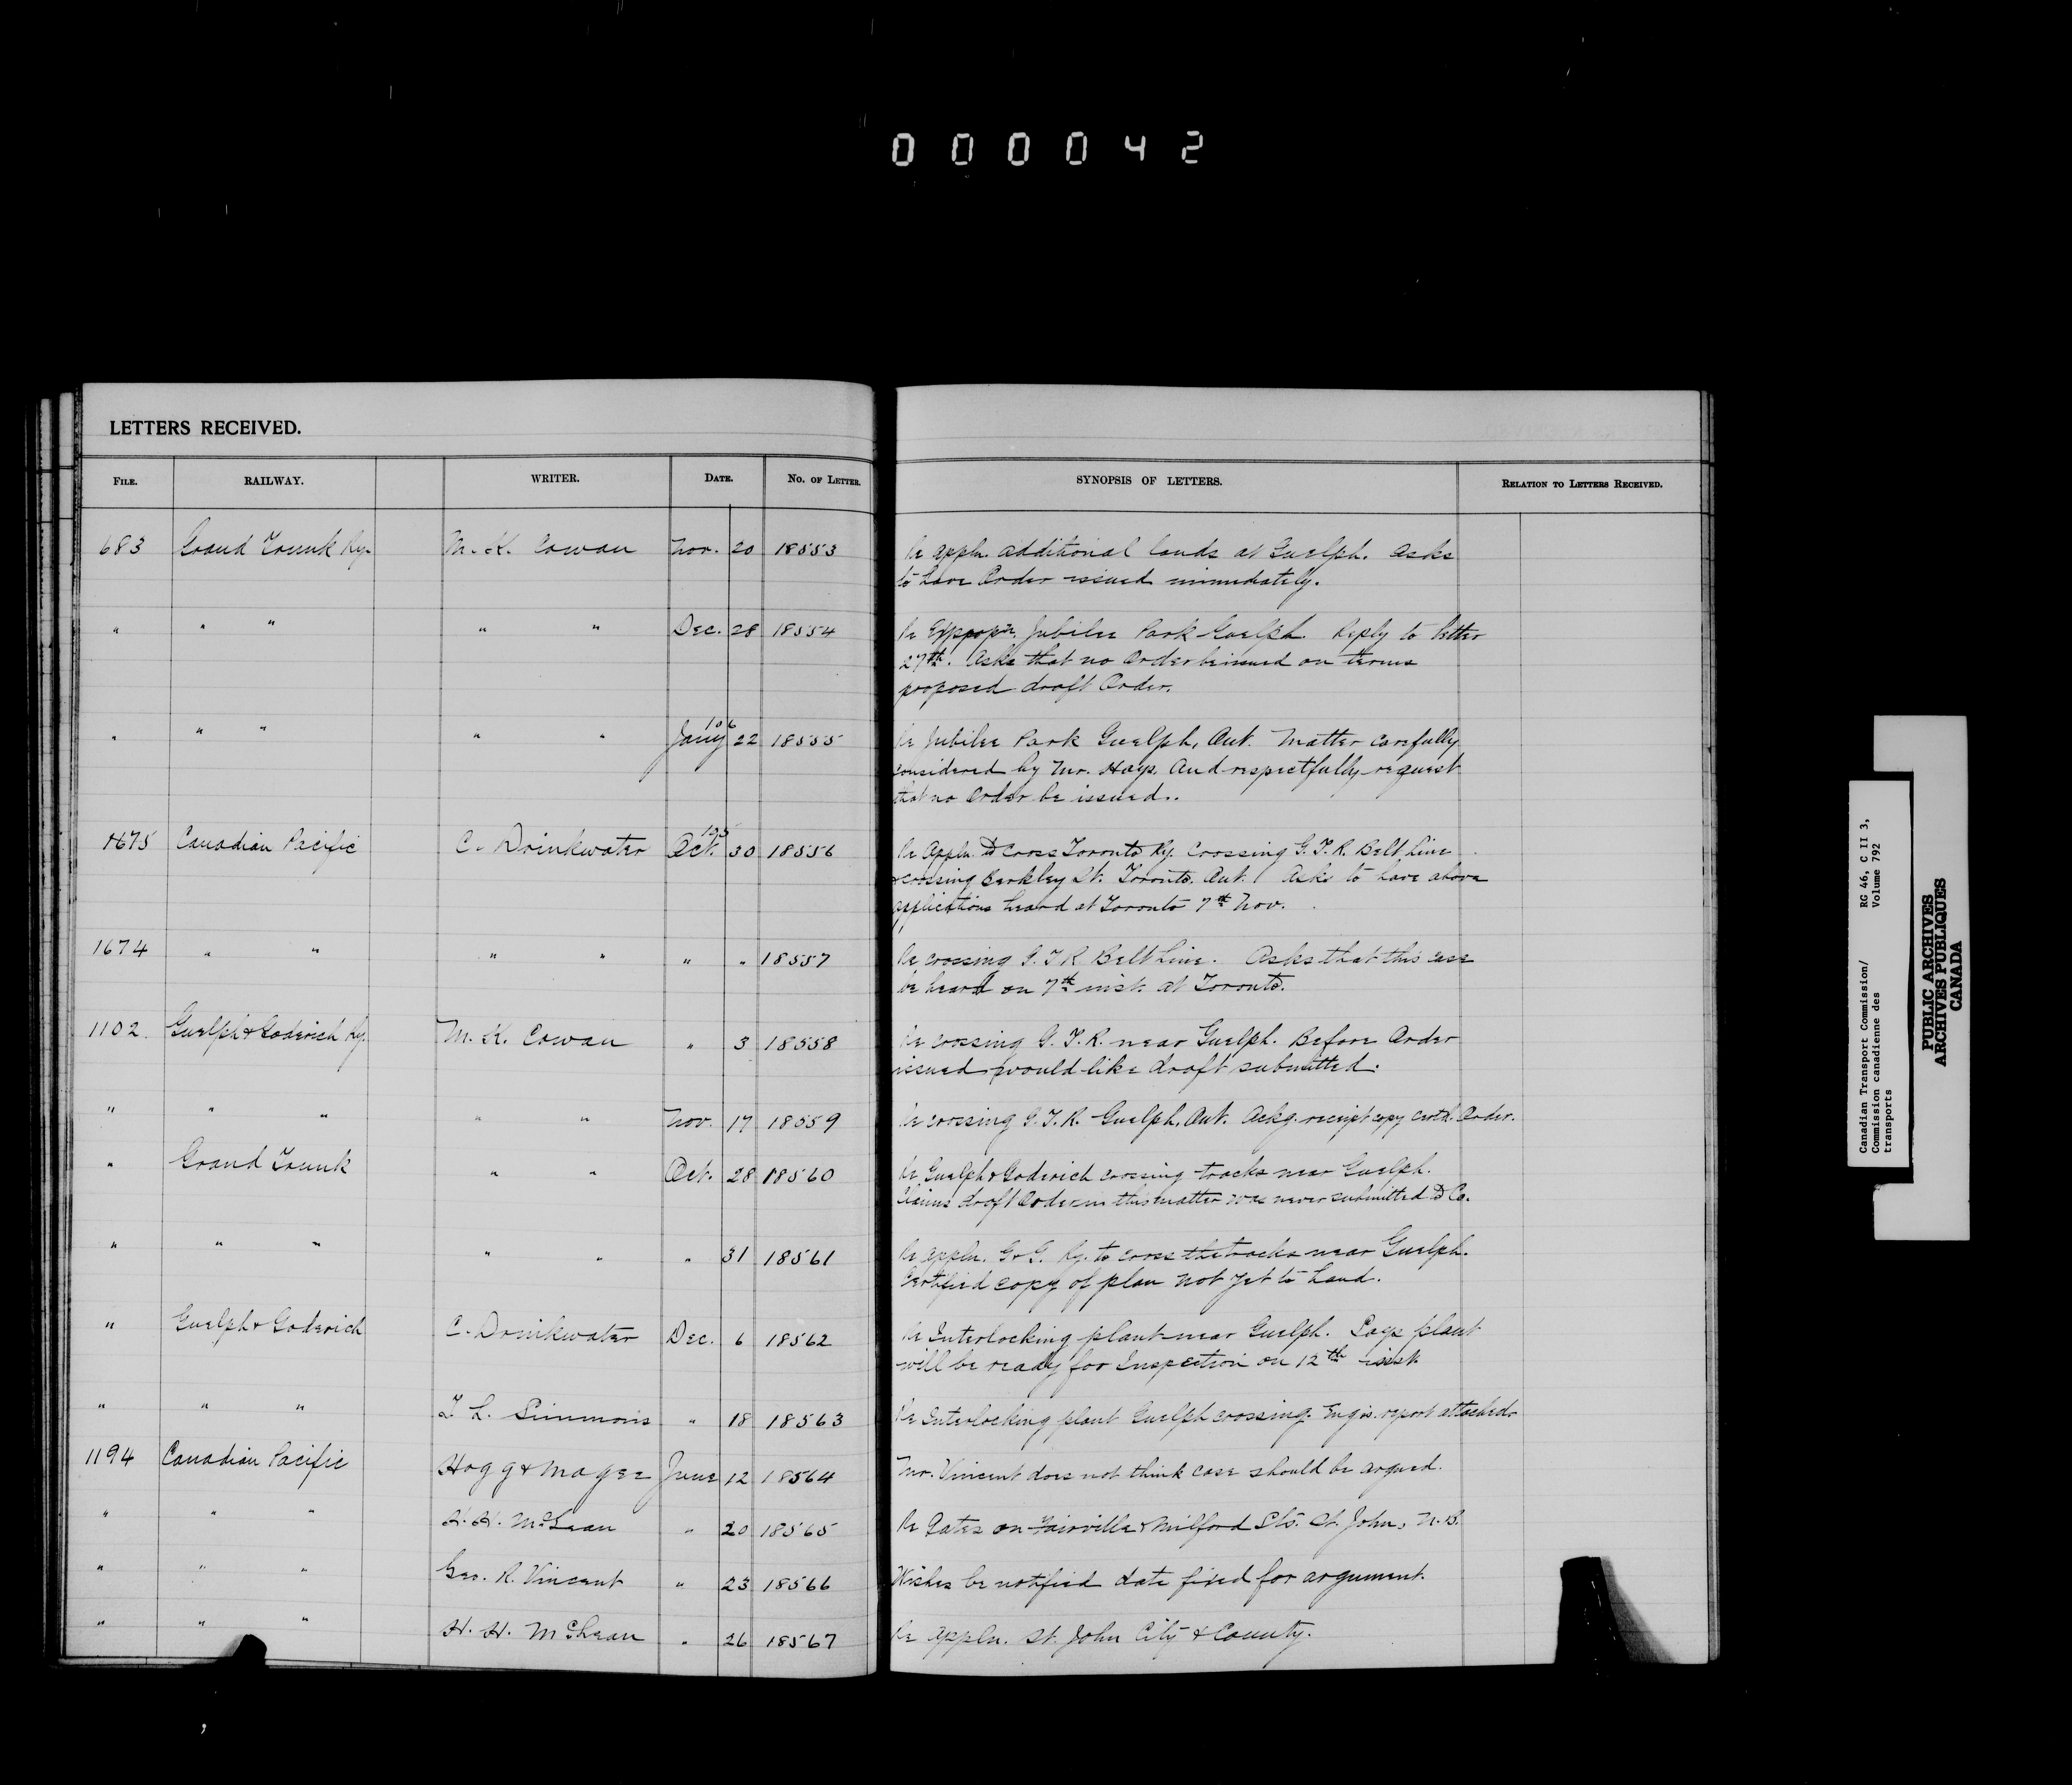 000042
LETTERS RECEIVED.
FILE. RAILWAY. WRITER. DATE. NO. OF LETTER. SYNOPSIS OF LETTERS. RELATION TO LETTERS RECEIVED.
683 Grand Trunk Ry. M. K. Cowan Nov. 20 18553 Re appln. additional lands at Guelph. Asks
to have Order issued immediately.
" " " " " Dec. 28 18554 Re Exppopn. Jubilee Park Guelph. Reply to letter
27th. Asks that no Order be issued on terms
proposed draft Order.
" " " " " Jany 1906 22 18555 Re Jubilee Park Guelph, Ont. Matter carefully
considered by Mr. Hays. And respectfully request
that no Order be issued..
1675 Canadian Pacific C. Drinkwater Oct. 1905 30 18556 Re Appln. to cross Toronto Ry. crossing G.T.R. Belt Line
& crossing Berkley St. Toronto. Ont. Asks to have above
applications heard at Toronto 7th Nov.
1674 " " " " " " 18557 Re crossing G.T.R. Belt Line. Asks that this case
be heard on 7th inst. at Toronto.
1102. Guelph & Goderich Ry. M. K. Cowan " 3 18558 Re crossing G.T.R. near Guelph. Before Order
issued would like draft submitted.
" " " " " Nov. 17 18559 Re crossing G.T.R. Guelph, Ont. Ackg. receipt copy certd. Order.
" Grand Trunk " " Oct. 28 18560 Re Guelph & Goderich crossing tracks near Guelph.
Claims draft Order in this matter was never submitted to Co.
" " " " " " 31 18561 Re appln. G & G. Ry. to cross the tracks near Guelph.
Certified copy of plan not yet to hand.
" Guelph & Goderich C. Drinkwater Dec. 6 18562 Re Interlocking plant near Guelph. Says plant
will be ready for Inspection on 12th inst.
" " " T. L. Simmons " 18 18563 Re Interlocking plant Guelph crossing. Engrs. report attached.
1194 Canadian Pacific Hogg & Magee June 12 18564 Mr. Vincent does not think case should be argued.
" " " H. H. McLean " 20 18565 Re Gates on Fairville & Milford Sts. St. John, N.B.
" " " Geo. R. Vincent " 23 18566 Wishes be notified date fixed for argument.
" " " H. H. McLean " 26 18567 Re appln. St. John City & County.
Canadian Transport Commission/ RG 46, C II 3,
Commission canadienne des Volume 792
transports
PUBLIC ARCHIVES
ARCHIVES PUBLIQUES
CANADA